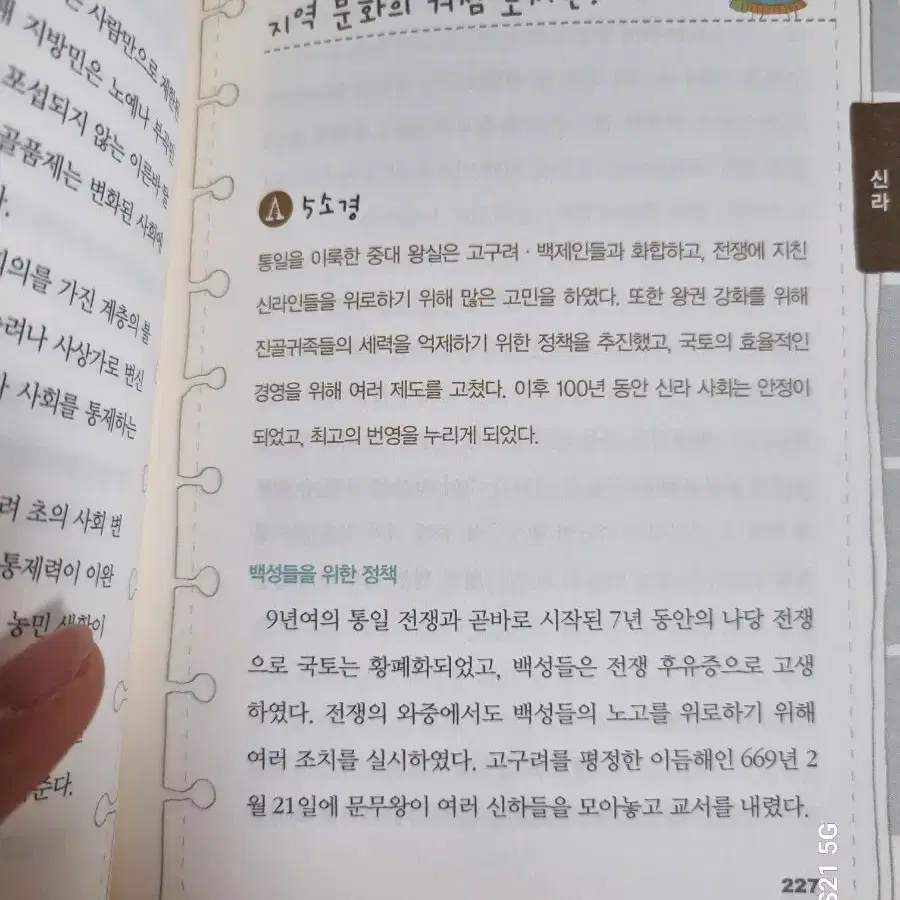 사람만으로 제한된
지방민은 노예나 부곡민
포섭되지 않는 이른바 탈
골품제는 변화된 사회에
다.
의를 가진 계층의 불
러나 사상가로 변신
사회를 통제하는
려 초의 사회 변
통제력이 이완
농민 생활이
준다.
지역 문화의
A 5소경
통일을 이룩한 중대 왕실은 고구려·백제인들과 화합하고, 전쟁에 지친
신라인들을 위로하기 위해 많은 고민을 하였다. 또한 왕권 강화를 위해
진골귀족들의 세력을 억제하기 위한 정책을 추진했고, 국토의 효율적인
경영을 위해 여러 제도를 고쳤다. 이후 100년 동안 신라 사회는 안정이
되었고, 최고의 번영을 누리게 되었다.
백성들을 위한 정책
9년여의 통일 전쟁과 곧바로 시작된 7년 동안의 나당 전쟁
으로 국토는 황폐화되었고, 백성들은 전쟁 후유증으로 고생
하였다. 전쟁의 와중에서도 백성들의 노고를 위로하기 위해
여러 조치를 실시하였다. 고구려를 평정한 이듬해인 669년 2
월 21일에 문무왕이 여러 신하들을 모아놓고 교서를 내렸다.
227
신라
S21 5G